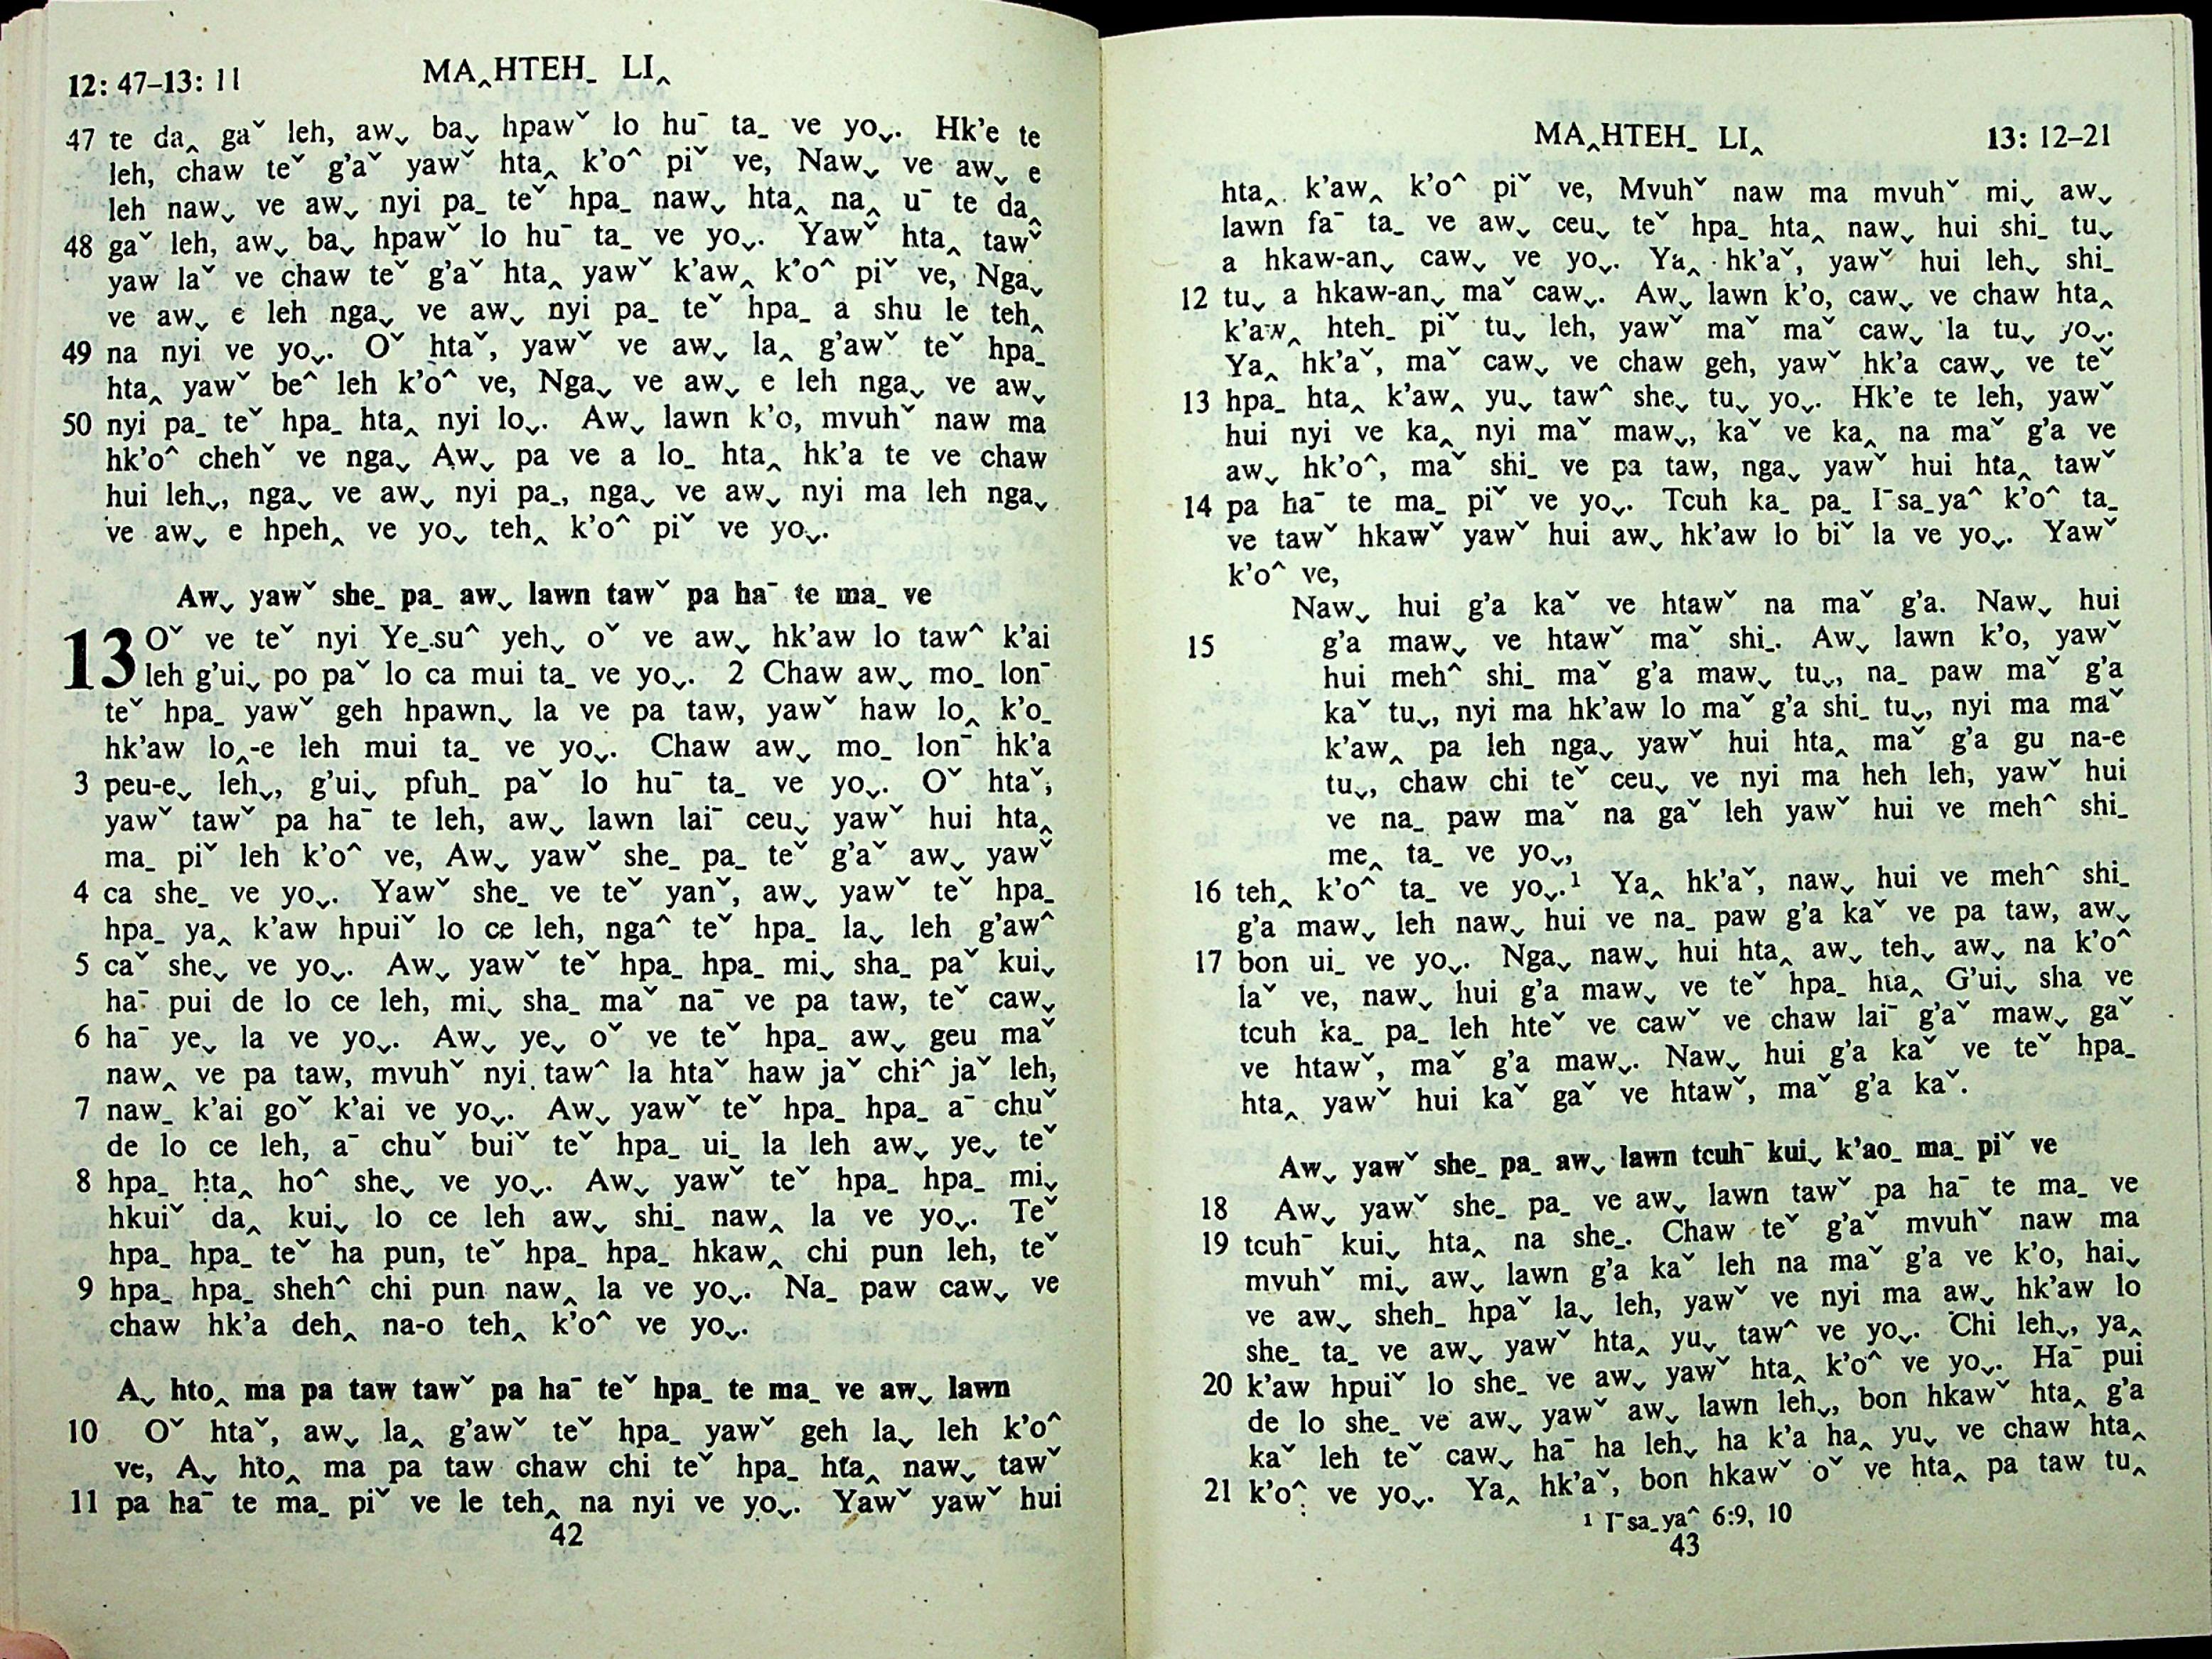 12: 47–13: 11
MA‸HTEH₋ LI‸
47 te da‸ gaˇ leh, aw⌄ ba⌄ hpawˇ lo huˉ ta₋ ve yo⌄. Hk'e te
leh, chaw teˇ g'aˇ yawˇ hta‸ k'o^ piˇ ve, Naw⌄ ve aw⌄ e
leh naw⌄ ve aw⌄ nyi pa₋ teˇ hpa₋ naw⌄ hta‸ na‸ uˉ te da‸
48 gaˇ leh, aw⌄ ba⌄ hpawˇ lo huˉ ta₋ ve yo⌄. Yawˇ hta‸ tawˇ
yaw laˇ ve chaw teˇ g'aˇ hta‸ yawˇ k'aw‸ k'o^ piˇ ve, Nga⌄
ve aw⌄ e leh nga⌄ ve aw⌄ nyi pa₋ teˇ hpa₋ a shu le teh‸
49 na nyi ve yo⌄. Oˇ htaˇ, yawˇ ve aw⌄ la‸ g'awˇ teˇ hpa₋
hta‸ yawˇ be^ leh k'o^ ve, Nga⌄ ve aw⌄ e leh nga⌄ ve aw⌄
50 nyi pa₋ teˇ hpa₋ hta‸ nyi lo⌄. Aw⌄ lawn k'o, mvuhˇ naw ma
hk'o^ chehˇ ve nga⌄ Aw⌄ pa ve a lo₋ hta‸ hk'a te ve chaw
hui leh⌄, nga⌄ ve aw⌄ nyi pa₋, nga⌄ ve aw⌄ nyi ma leh nga⌄
ve aw⌄ e hpeh‸ ve yo⌄ teh‸ k'o^ piˇ ve yo⌄.
Aw⌄ yawˇ she₋ pa₋ aw⌄ lawn tawˇ pa haˉ te ma₋ ve
13 Oˇ ve teˇ nyi Ye₋su^ yeh⌄ oˇ ve aw⌄ hk'aw lo taw^ k'ai
leh g'ui⌄ po paˇ lo ca mui ta₋ ve yo⌄. 2 Chaw aw⌄ mo₋ lonˉ
teˇ hpa₋ yawˇ geh hpawn⌄ la ve pa taw, yawˇ haw lo‸ k'o₋
hk'aw lo‸-e leh mui ta₋ ve yo⌄. Chaw aw⌄ mo₋ lonˉ hk'a
3 peu-e⌄ leh⌄, g'ui⌄ pfuh₋ paˇ lo huˉ ta₋ ve yo⌄. Oˇ htaˇ,
yawˇ tawˇ pa haˉ te leh, aw⌄ lawn laiˉ ceu⌄ yawˇ hui hta‸
ma₋ piˇ leh k'o^ ve, Aw⌄ yawˇ she₋ pa₋ teˇ g'aˇ aw⌄ yawˇ
4 ca she₋ ve yo⌄. Yawˇ she₋ ve teˇ yanˇ, aw⌄ yawˇ teˇ hpa₋
hpa₋ ya‸ k'aw hpuiˇ lo ce leh, nga^ teˇ hpa₋ la⌄ leh g'aw^
5 caˇ she⌄ ve yo⌄. Aw⌄ yawˇ teˇ hpa₋ hpa₋ mi⌄ sha₋ paˇ kui⌄
haˉ pui de lo ce leh, mi⌄ sha₋ maˇ naˉ ve pa taw, teˇ caw⌄
6 haˉ ye⌄ la ve yo⌄. Aw⌄ ye⌄ oˇ ve teˇ hpa₋ aw⌄ geu maˇ
naw‸ ve pa taw, mvuhˇ nyi taw^ la htaˇ haw jaˇ chi^ jaˇ leh,
7 naw₋ k'ai goˇ k'ai ve yo⌄. Aw⌄ yawˇ teˇ hpa₋ hpa₋ aˉ chuˇ
de lo ce leh, aˉ chuˇ buiˇ teˇ hpa₋ ui₋ la leh aw⌄ ye⌄ teˇ
8 hpa₋ hta‸ ho^ she⌄ ve yo⌄. Aw⌄ yawˇ teˇ hpa₋ hpa₋ mi⌄
hkuiˇ da‸ kui⌄ lo ce leh aw⌄ shi₋ naw‸ la ve yo⌄. Teˇ
hpa₋ hpa₋ teˇ ha pun, teˇ hpa₋ hpa₋ hkaw‸ chi pun leh, teˇ
9 hpa₋ hpa₋ sheh^ chi pun naw‸ la ve yo⌄. Na₋ paw caw⌄ ve
chaw hk'a deh‸ na-o teh‸ k'o^ ve yo⌄.
A⌄ hto‸ ma pa taw tawˇ pa haˉ teˇ hpa₋ te ma₋ ve aw⌄ lawn
10 Oˇ htaˇ, aw⌄ la‸ g'awˇ teˇ hpa₋ yawˇ geh la⌄ leh k'o^
ve, A⌄ hto‸ ma pa taw chaw chi teˇ hpa₋ hta‸ naw⌄ tawˇ
11 pa haˉ te ma₋ piˇ ve le teh‸ na nyi ve yo⌄. Yawˇ yawˇ hui
42
MA‸HTEH₋ LI‸
13: 12–21
hta‸ k'aw‸ k'o^ piˇ ve, Mvuhˇ naw ma mvuhˇ mi⌄ aw⌄
lawn faˉ ta₋ ve aw⌄ ceu⌄ teˇ hpa₋ hta‸ naw⌄ hui shi₋ tu⌄
a hkaw-an⌄ caw⌄ ve yo⌄. Ya‸ hk'aˇ, yawˇ hui leh⌄ shi₋
12 tu⌄ a hkaw-an⌄ maˇ caw⌄. Aw⌄ lawn k'o, caw⌄ ve chaw hta‸
k'aw‸ hteh₋ piˇ tu⌄ leh, yawˇ maˇ maˇ caw⌄ la tu⌄ yo⌄.
Ya‸ hk'aˇ, maˇ caw⌄ ve chaw geh, yawˇ hk'a caw⌄ ve teˇ
13 hpa₋ hta‸ k'aw‸ yu⌄ taw^ she⌄ tu⌄ yo⌄. Hk'e te leh, yawˇ
hui nyi ve ka‸ nyi maˇ maw⌄, kaˇ ve ka‸ na maˇ g'a ve
aw⌄ hk'o^, maˇ shi₋ ve pa taw, nga⌄ yawˇ hui hta‸ tawˇ
14 pa haˉ te ma₋ piˇ ve yo⌄. Tcuh ka₋ pa₋ Iˉsa₋ya^ k'o^ ta₋
ve tawˇ hkawˇ yawˇ hui aw⌄ hk'aw lo biˇ la ve yo⌄. Yawˇ
k'o^ ve,
Naw⌄ hui g'a kaˇ ve htawˇ na maˇ g'a. Naw⌄ hui
15 g'a maw⌄ ve htawˇ maˇ shi₋. Aw⌄ lawn k'o, yawˇ
hui meh^ shi₋ maˇ g'a maw⌄ tu⌄, na₋ paw maˇ g'a
kaˇ tu⌄, nyi ma hk'aw lo maˇ g'a shi₋ tu⌄, nyi ma maˇ
k'aw‸ pa leh nga⌄ yawˇ hui hta‸ maˇ g'a gu na-e
tu⌄, chaw chi teˇ ceu⌄ ve nyi ma heh leh, yawˇ hui
ve na₋ paw maˇ na gaˇ leh yawˇ hui ve meh^ shi₋
me‸ ta₋ ve yo⌄,
16 teh‸ k'o^ ta₋ ve yo⌄.¹ Ya‸ hk'aˇ, naw⌄ hui ve meh^ shi₋
g'a maw⌄ leh naw⌄ hui ve na₋ paw g'a kaˇ ve pa taw, aw⌄
17 bon ui₋ ve yo⌄. Nga⌄ naw⌄ hui hta‸ aw⌄ teh⌄ aw⌄ na k'o^
laˇ ve, naw⌄ hui g'a maw⌄ ve teˇ hpa₋ hta‸ G'ui⌄ sha ve
tcuh ka₋ pa₋ leh hteˇ ve cawˇ ve chaw laiˉ g'aˇ maw⌄ gaˇ
ve htawˇ, maˇ g'a maw⌄. Naw⌄ hui g'a kaˇ ve teˇ hpa₋
hta‸ yawˇ hui kaˇ gaˇ ve htawˇ, maˇ g'a kaˇ.
Aw⌄ yawˇ she₋ pa₋ aw⌄ lawn tcuhˉ kui⌄ k'ao₋ ma₋ piˇ ve
18 Aw⌄ yawˇ she₋ pa₋ ve aw⌄ lawn tawˇ pa haˉ te ma₋ ve
19 tcuhˉ kui⌄ hta‸ na she₋. Chaw teˇ g'aˇ mvuhˇ naw ma
mvuhˇ mi⌄ aw⌄ lawn g'a kaˇ leh na maˇ g'a ve k'o, hai⌄
ve aw⌄ sheh₋ hpaˇ la⌄ leh, yawˇ ve nyi ma aw⌄ hk'aw lo
she₋ ta₋ ve aw⌄ yawˇ hta‸ yu⌄ taw^ ve yo⌄. Chi leh⌄, ya‸
20 k'aw hpuiˇ lo she₋ ve aw⌄ yawˇ hta‸ k'o^ ve yo⌄. Haˉ pui
de lo she₋ ve aw⌄ yawˇ aw⌄ lawn leh⌄, bon hkawˇ hta‸ g'a
kaˇ leh teˇ caw⌄ haˉ ha leh⌄ ha k'a ha‸ yu⌄ ve chaw hta‸
21 k'o^ ve yo⌄. Ya‸ hk'aˇ, bon hkawˇ oˇ ve hta‸ pa taw tu‸
¹ Iˉsa₋ya^ 6:9, 10
43